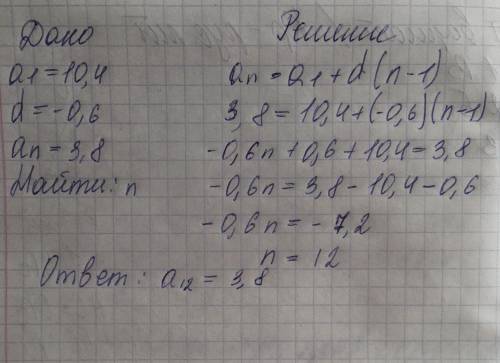 Дано
Решение
a1 = 10,4
an = a1 + d (n-1)
d = -0,6
3,8 = 10,4 + (-0,6)(n-1)
an = 3,8
-0,6n + 0,6 + 10,4 = 3,8
Найти: n
-0,6n = 3,8 - 10,4 - 0,6
-0,6n = - 7,2
n = 12
Ответ: a12 = 3,8